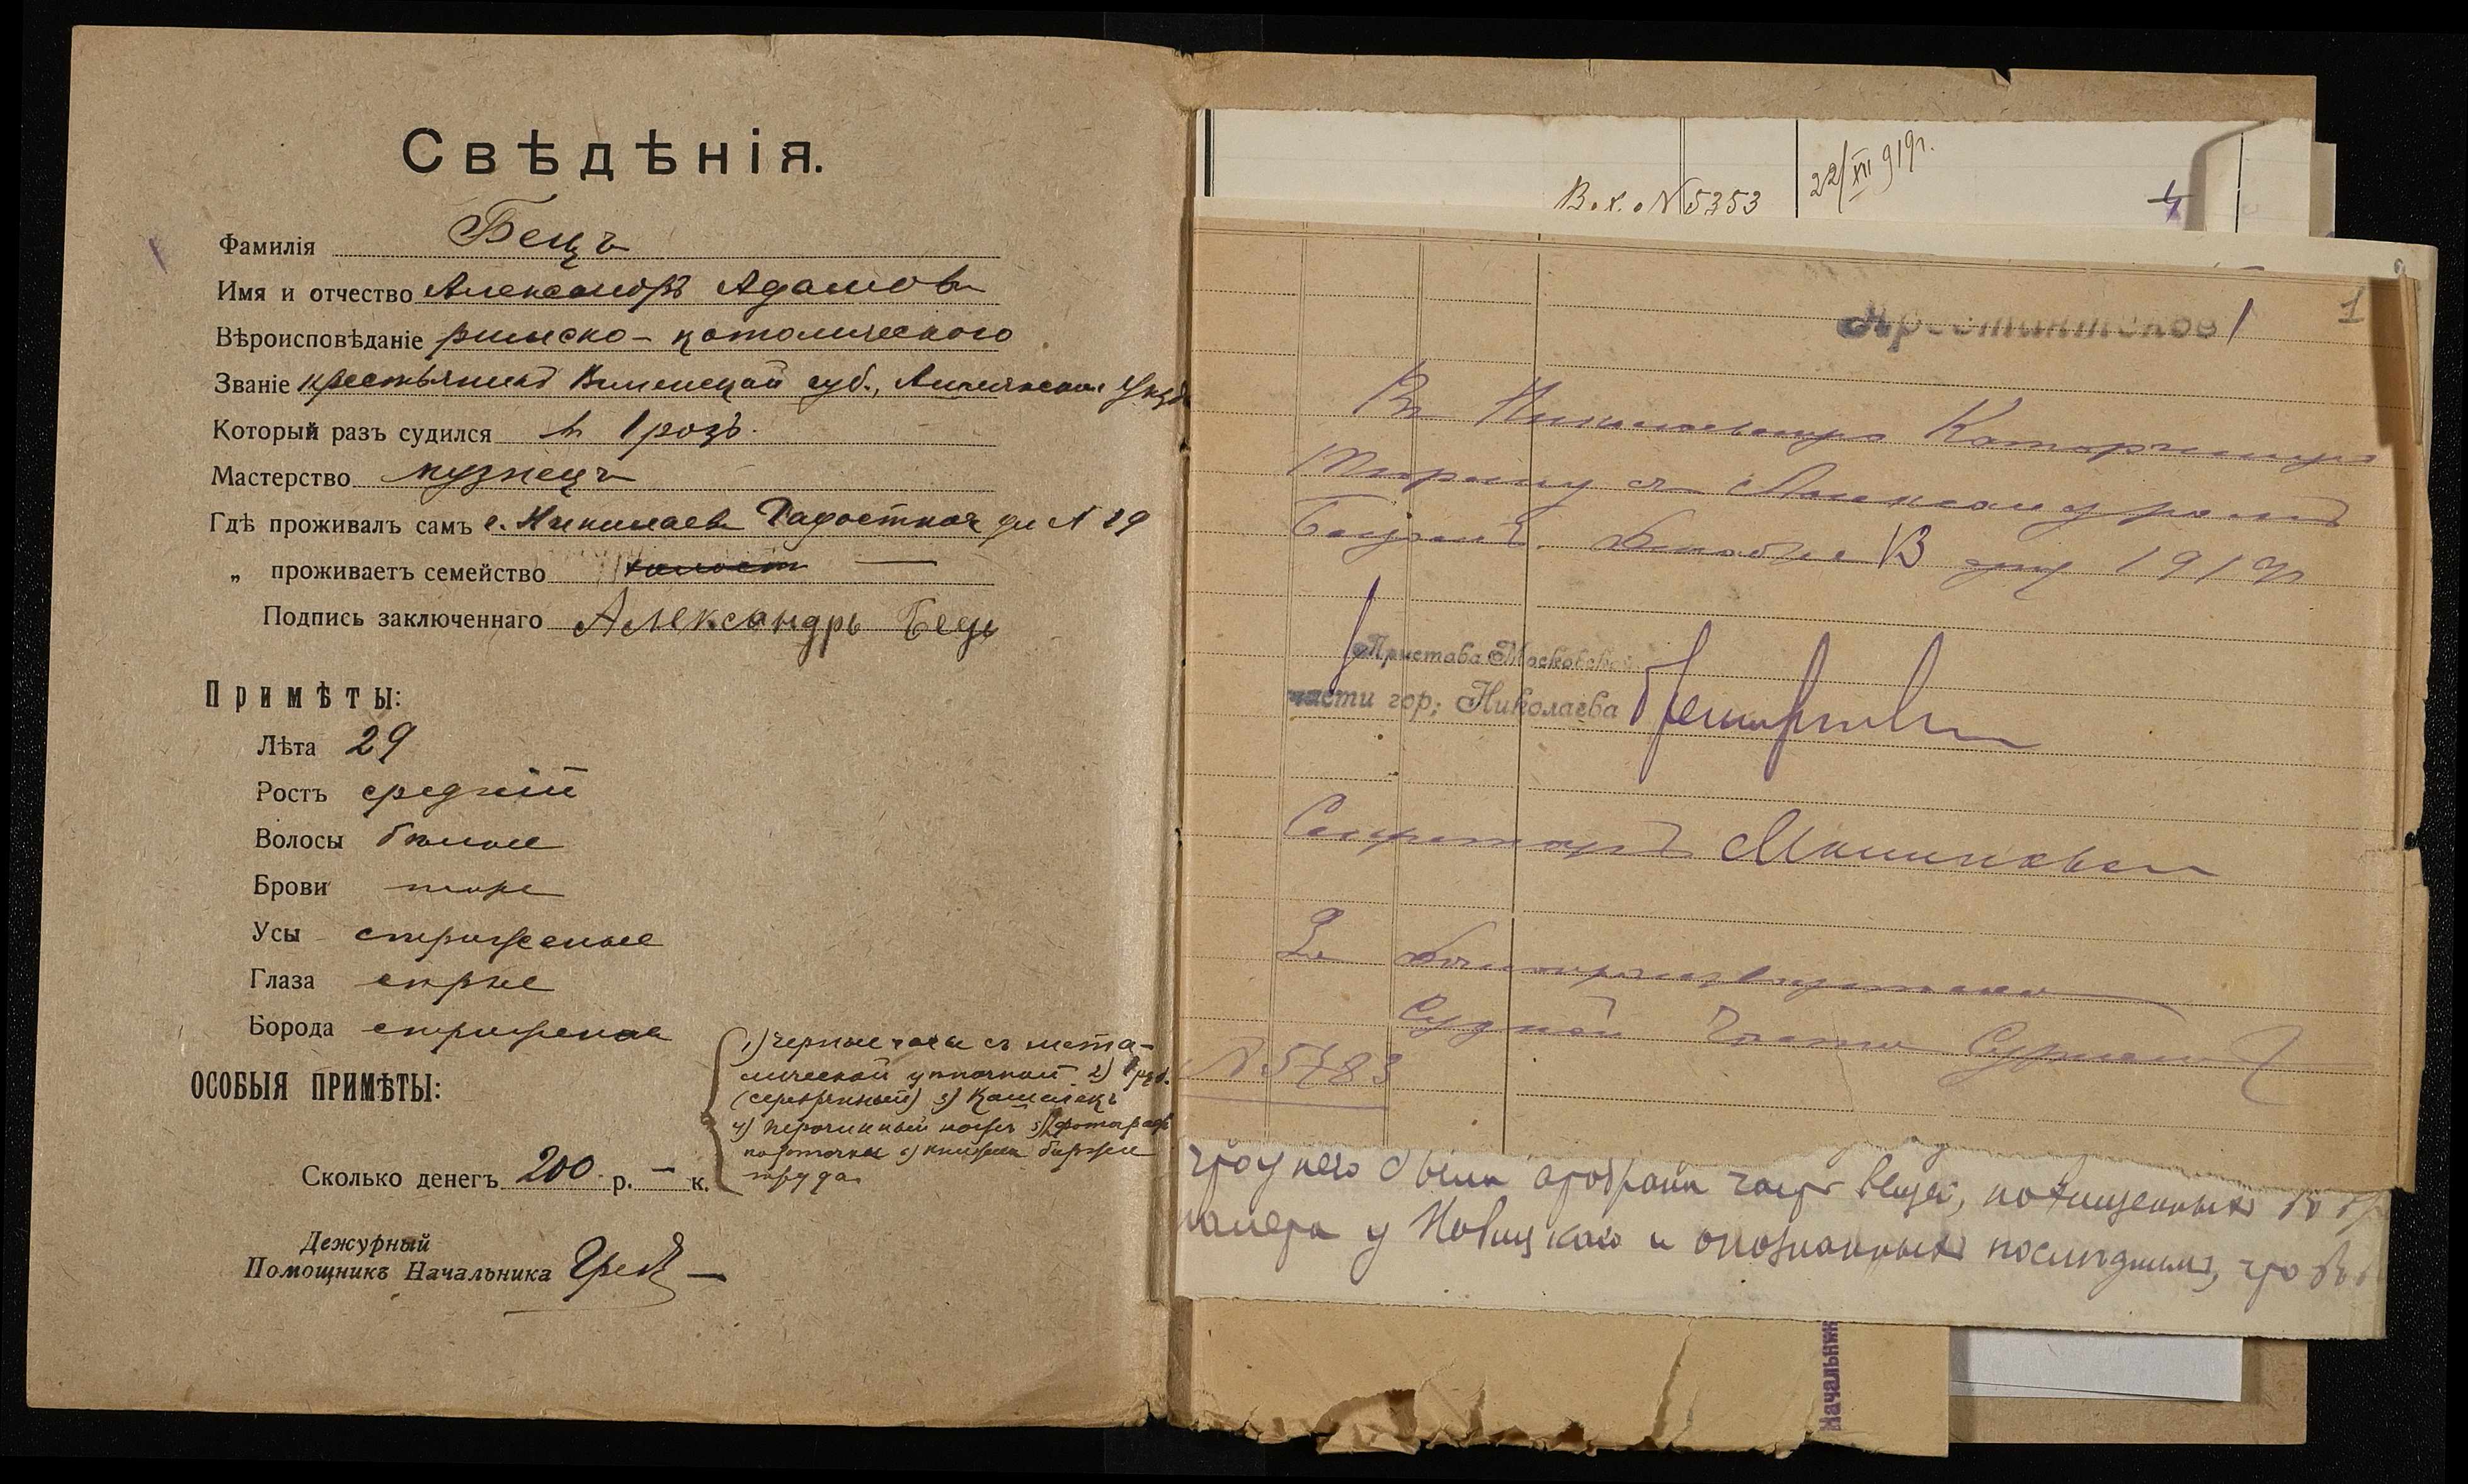 Свѣдѣнія.
Фамилія Бецъ
Имя и отчество Александръ Адамовъ
Вѣроисповѣданіе римско-католического
Званіе крестьянинъ Виленской губ.,
Который разъ судился 1 разъ.
Мастерство кузнецъ
Гдѣ проживалъ самъ г. Николаевъ № 29
„ проживаетъ семейство холостъ —
Подпись заключеннаго Александръ Бець
Примѣты:
Лѣта 29
Ростъ средній
Волосы бѣлые
Брови тоже
Усы стриженые
Глаза сѣрые
Борода стриженая
ОСОБЫЯ ПРИМѢТЫ:
1) черные часы съ мета-
лической цѣпочкой 2)
(серебрянный) 3) Кашелекъ
4) перочинный ножъ 5) фотограф
карточка 6) книжка биржи
труда
Сколько денегъ 200 р. — к.
Дежурный
Помощникъ Начальника
В.х. № 5353
22/XII 919г.
1
Арестантсков
Въ Николаевскую Каторжную
Тюрьму съ Александромъ
Бецомъ. 1919
Пристава Московской
части гор; Николаева
Секретарь
За
Судной Части
№ 5783
что у него были отобраны часть вещей, похищенныхъ
у Новицкаго и опознанныхъ послѣднимъ, что
Начальник